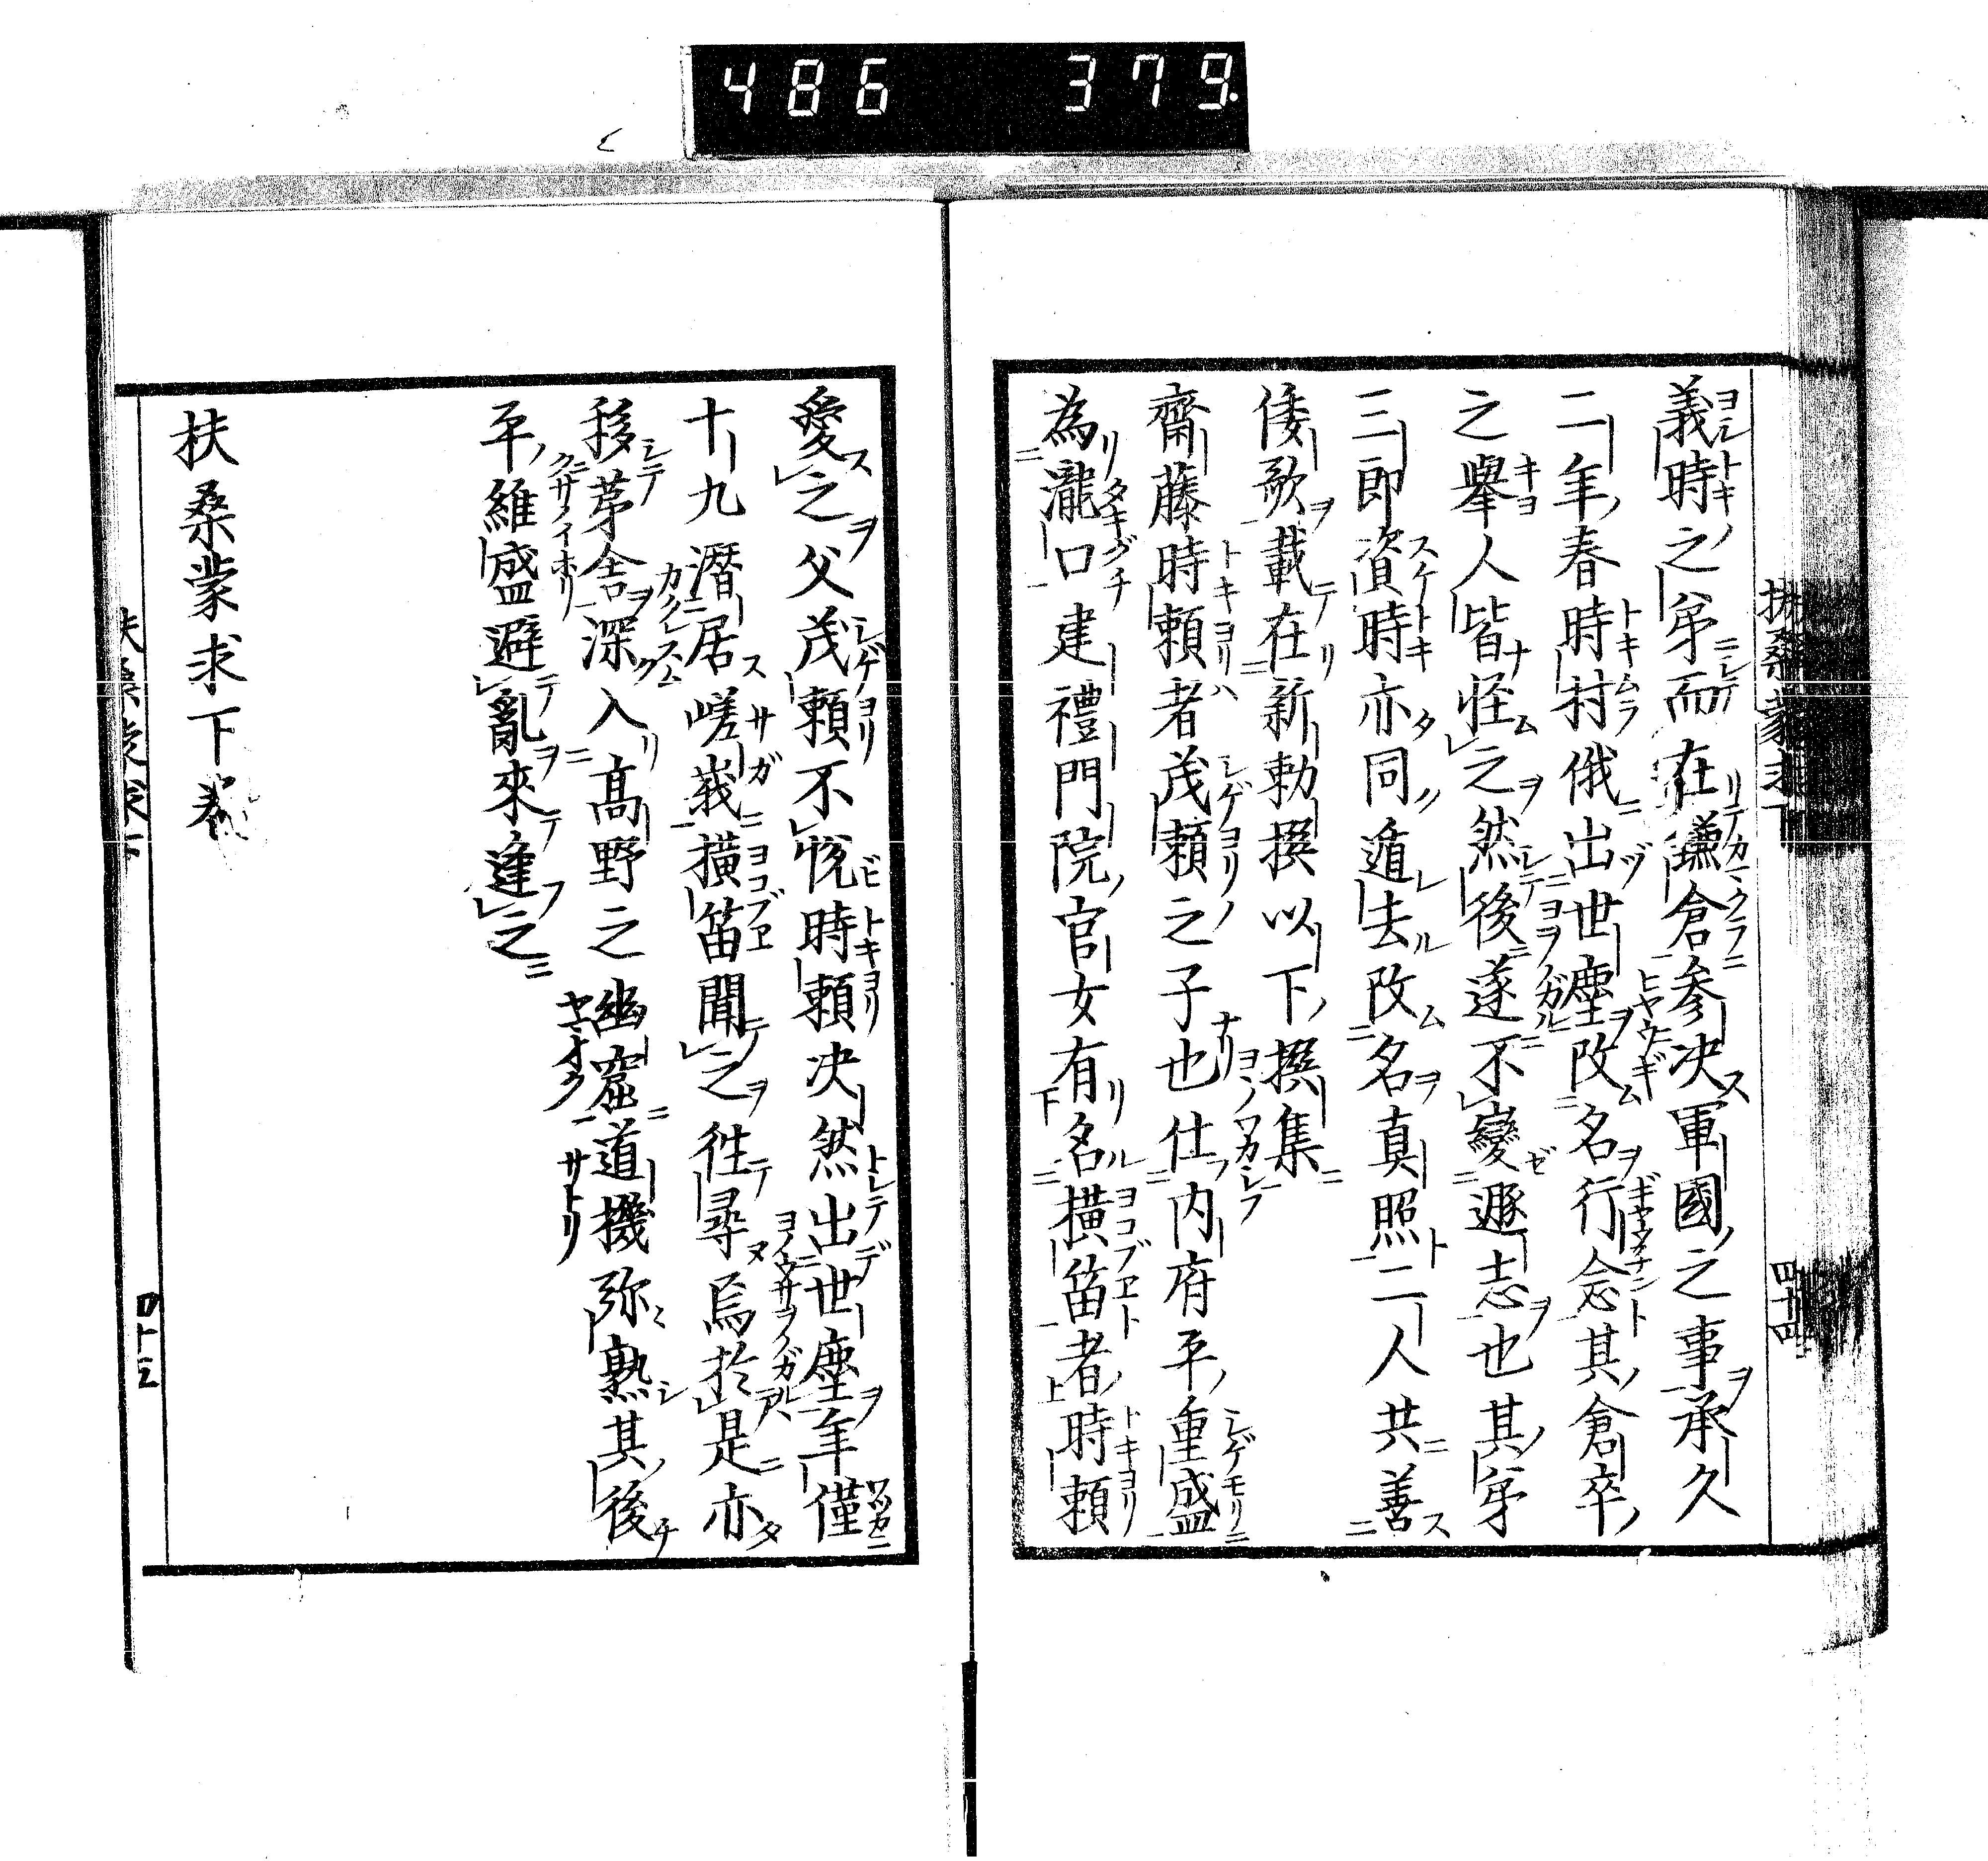 486 379.
扶桑蒙求下
四十四
義時之弟而在鎌倉参决軍國之事承久
二年春時村俄出世塵改名行念其倉卒
之擧人皆怪之然後遂不變遯志也其弟
三郎資時亦同遁去改名真照二人共善
倭歌載在新勅撰以下撰集
齋藤時頼者茂頼之子也仕内府平重盛
為瀧口建禮門院官女有名横笛者時頼
愛之父茂頼不悅時頼决然出世塵年僅
十九潛居嵯峩横笛聞之往尋焉於是亦
移茅舎深入髙野之幽窟道機弥熟其後
平維盛避亂來逢之
扶桑蒙求下巻
扶桑蒙求下
四十三